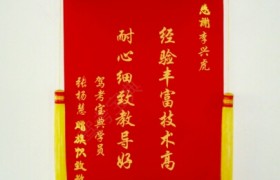 感谢李兴虎
经验丰富技术高
耐心细致教导好
驾考宝典学员
张杨慧